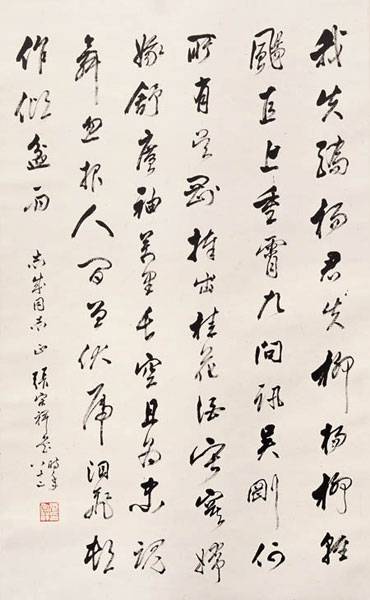 我失驕楊君失柳楊柳輕
颺直上重霄九問訊吳剛何
所有吳剛捧出桂花酒寂寞嫦
娥舒廣袖萬里長空且為忠魂
舞忽報人間曾伏虎泪飛頓
作傾盆雨
志成同志正 張宗祥書
時年八十二